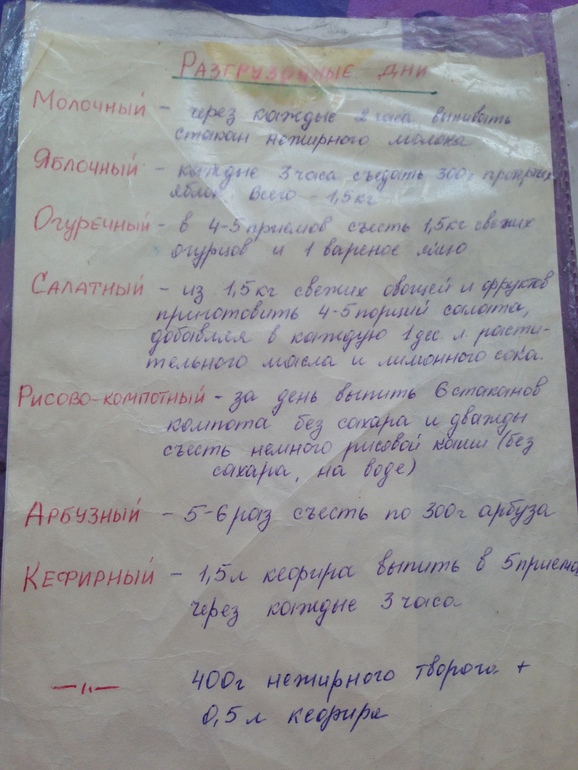 Разгрузочные дни
Молочный - через каждые 2 часа выпивать
стакан нежирного молока
Яблочный - каждые 3 часа съедать 300г
яблок. Всего - 1,5 кг
Огуречный - в 4-5 приемов съесть 1,5 кг свежих
огурцов и 1 вареное яйцо
Салатный - из 1,5 кг свежих овощей и фруктов
приготовить 4-5 порций салата,
добавляя в каждую 1 дес. л. расти-
тельного масла и лимонного сока.
Рисово-компотный - за день выпить 6 стаканов
компота без сахара и дважды
съесть немного рисовой каши (без
сахара, на воде)
Арбузный - 5-6 раз съесть по 300г арбуза
Кефирный - 1,5л кефира выпить в 5 приемо
через каждые 3 часа
—"— 400г нежирного творога +
0,5 л кефира